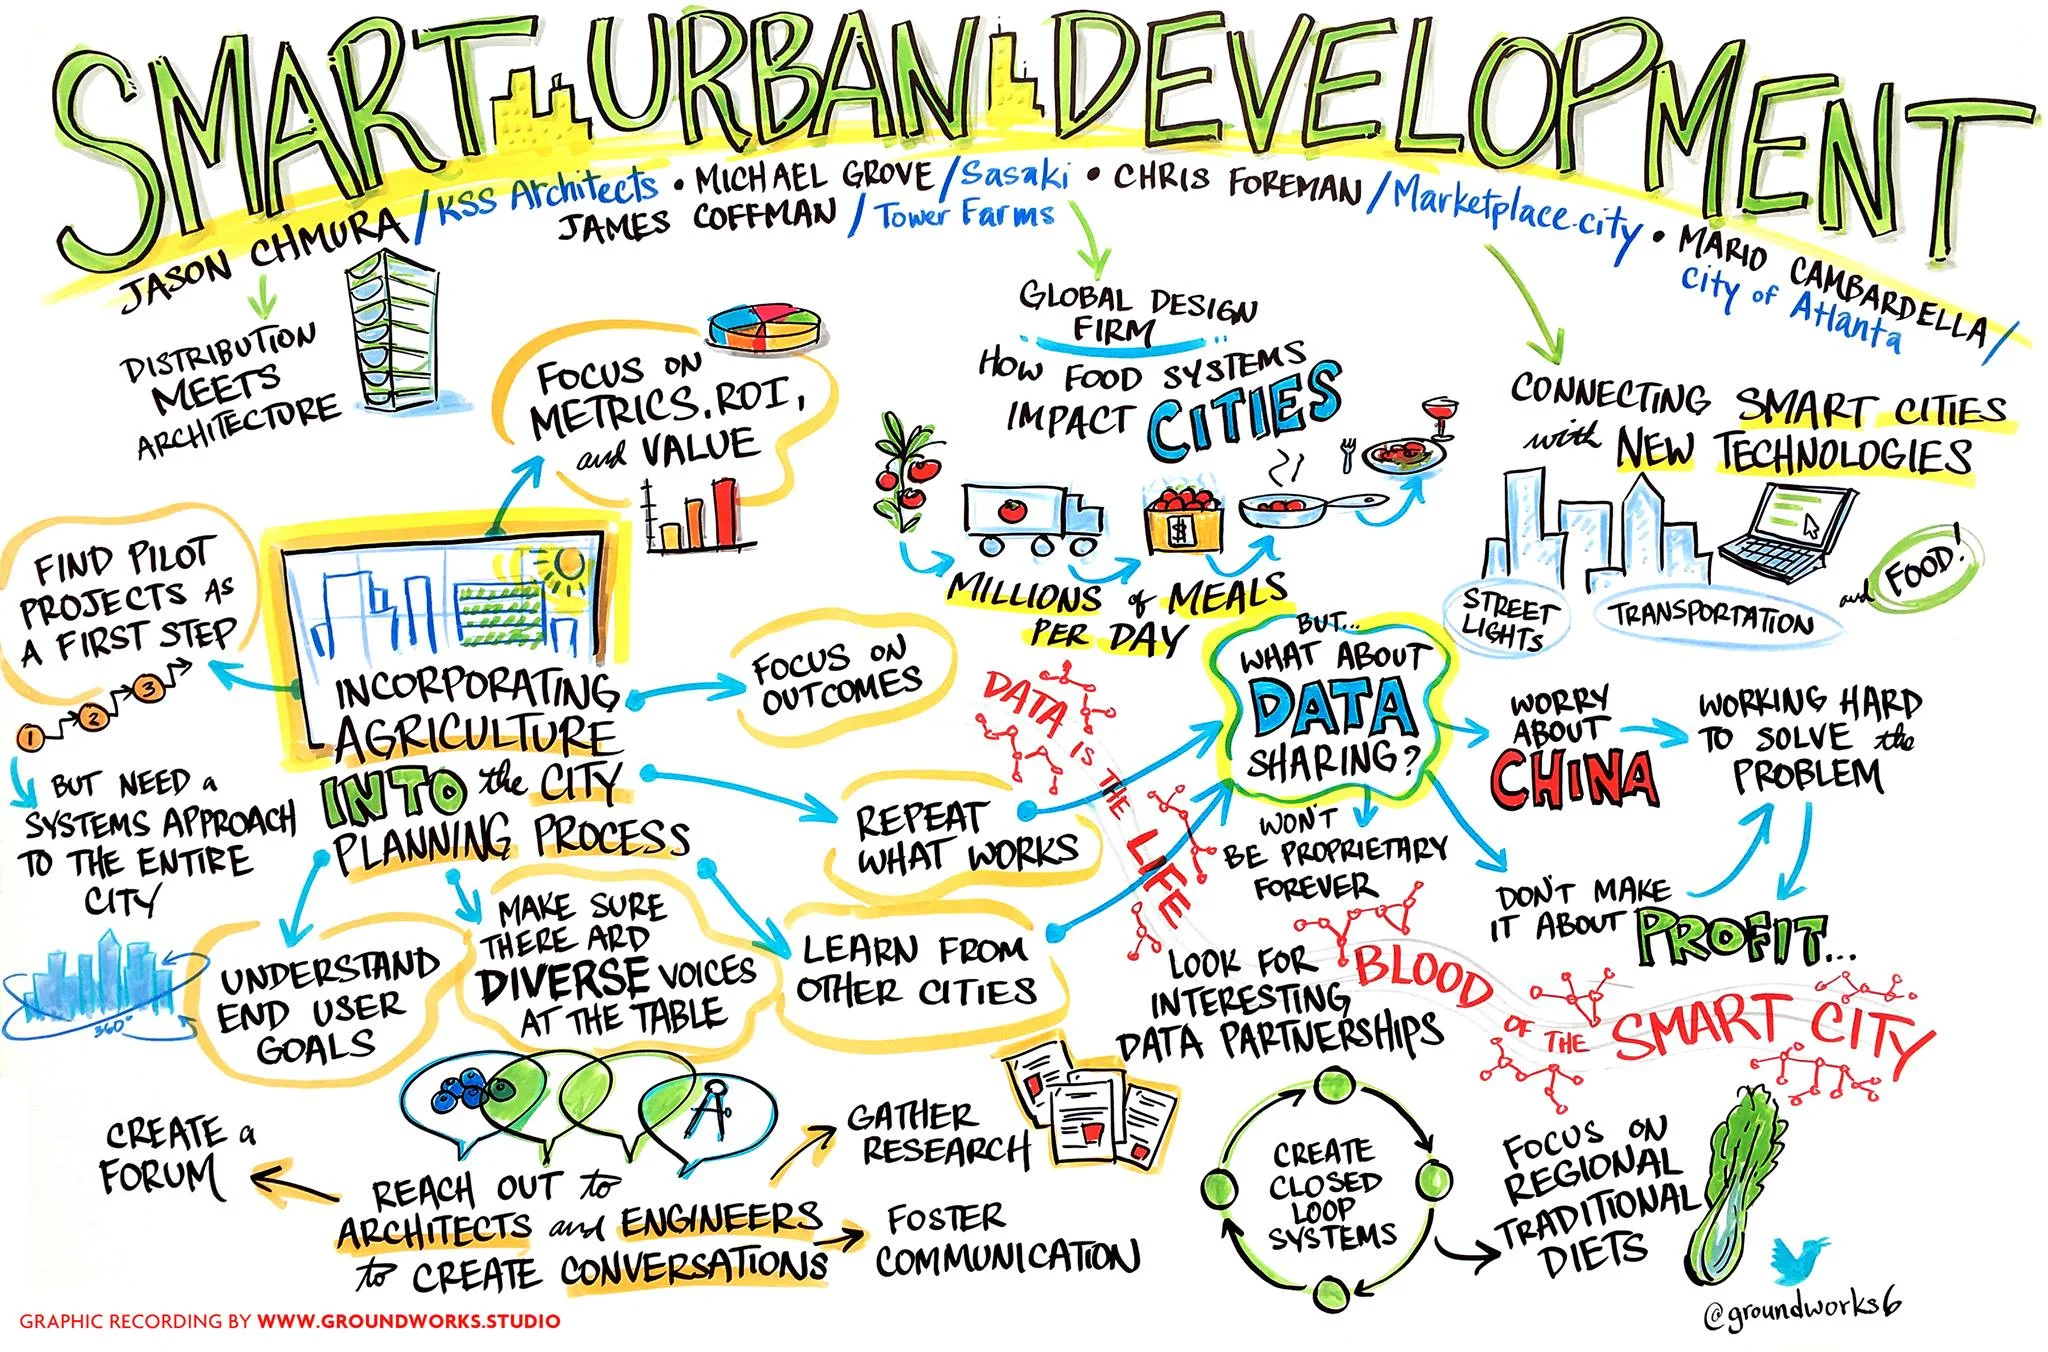 SMART URBAN DEVELOPMENT
JASON CHMURA / KSS Architects • MICHAEL GROVE / Sasaki • CHRIS FOREMAN / Marketplace.city • MARIO CAMBARDELLA /
JAMES COFFMAN / Tower Farms
City of Atlanta
DISTRIBUTION
MEETS
ARCHITECTURE
FOCUS ON
METRICS, ROI,
and VALUE
GLOBAL DESIGN
FIRM
HOW FOOD SYSTEMS
IMPACT CITIES
$
MILLIONS of MEALS
PER DAY
CONNECTING SMART CITIES
with NEW TECHNOLOGIES
STREET
LIGHTS
TRANSPORTATION
and FOOD!
FIND PILOT
PROJECTS AS
A FIRST STEP
1
2
3
BUT NEED a
SYSTEMS APPROACH
TO THE ENTIRE
CITY
360°
INCORPORATING
AGRICULTURE
INTO the CITY
PLANNING PROCESS
FOCUS ON
OUTCOMES
REPEAT
WHAT WORKS
LEARN FROM
OTHER CITIES
MAKE SURE
THERE ARD
DIVERSE VOICES
AT THE TABLE
UNDERSTAND
END USER
GOALS
BUT...
WHAT ABOUT
DATA
SHARING?
WORRY
ABOUT
CHINA
WORKING HARD
TO SOLVE the
PROBLEM
WON'T
BE PROPRIETARY
FOREVER
DON'T MAKE
IT ABOUT
PROFIT...
DATA IS THE LIFE BLOOD OF THE SMART CITY
LOOK FOR
INTERESTING
DATA PARTNERSHIPS
CREATE a
FORUM
REACH OUT to
ARCHITECTS and ENGINEERS
to CREATE CONVERSATIONS
GATHER
RESEARCH
FOSTER
COMMUNICATION
CREATE
CLOSED
LOOP
SYSTEMS
FOCUS ON
REGIONAL
TRADITIONAL
DIETS
@groundworks6
GRAPHIC RECORDING BY WWW.GROUNDWORKS.STUDIO